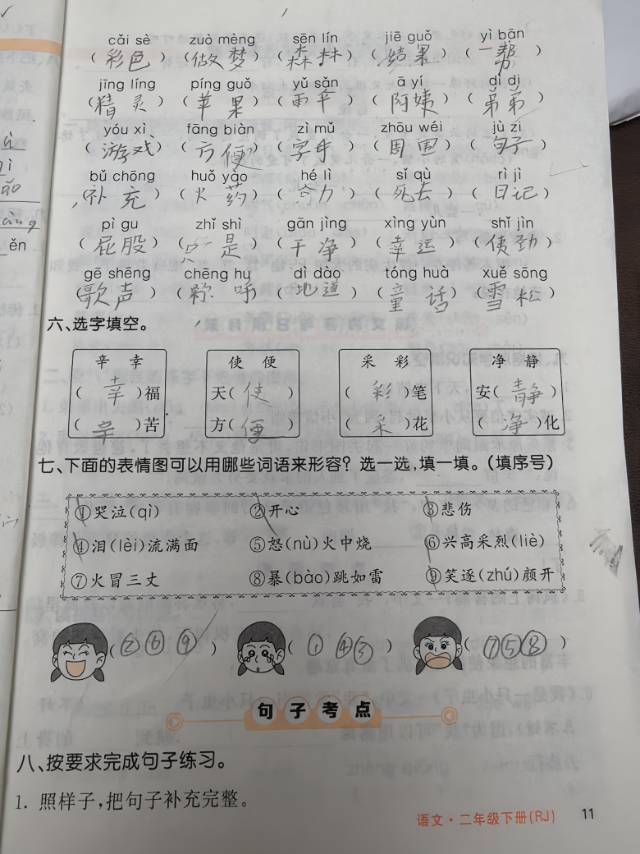 cǎi sè zuò mèng sēn lín jiē guǒ yì bān
(彩色)(做梦)(森林)(结果)(一帮)
jīng líng píng guǒ yǔ sǎn ā yí dì di
(精灵)(苹果)(雨伞)(阿姨)(弟弟)
yóu xì fāng biàn zì mǔ zhōu wéi jù zi
(游戏)(方便)(字母)(周围)(句子)
bǔ chōng huǒ yào hé lì sǐ qù rì jì
(补充)(火药)(合力)(死去)(日记)
pì gu zhǐ shì gān jìng xìng yùn shǐ jìn
(屁股)(只是)(干净)(幸运)(使劲)
gē shēng chēng hu dì dào tóng huà xuě sōng
(歌声)(称呼)(地道)(童话)(雪松)
六、选字填空。
辛 幸 使 便 采 彩 净 静
(幸)福 天(使) (彩)笔 安(静)
(辛)苦 方(便) (采)花 (净)化
七、下面的表情图可以用哪些词语来形容？选一选,填一填。(填序号)
①哭泣(qì) ②开心 ③悲伤
④泪(lèi)流满面 ⑤怒(nù)火中烧 ⑥兴高采烈(liè)
⑦火冒三丈 ⑧暴(bào)跳如雷 ⑨笑逐(zhú)颜开
(②⑥⑨) (①④③) (⑦⑤⑧)
句子考点
八、按要求完成句子练习。
1. 照样子,把句子补充完整。
语文·二年级下册(RJ) 11